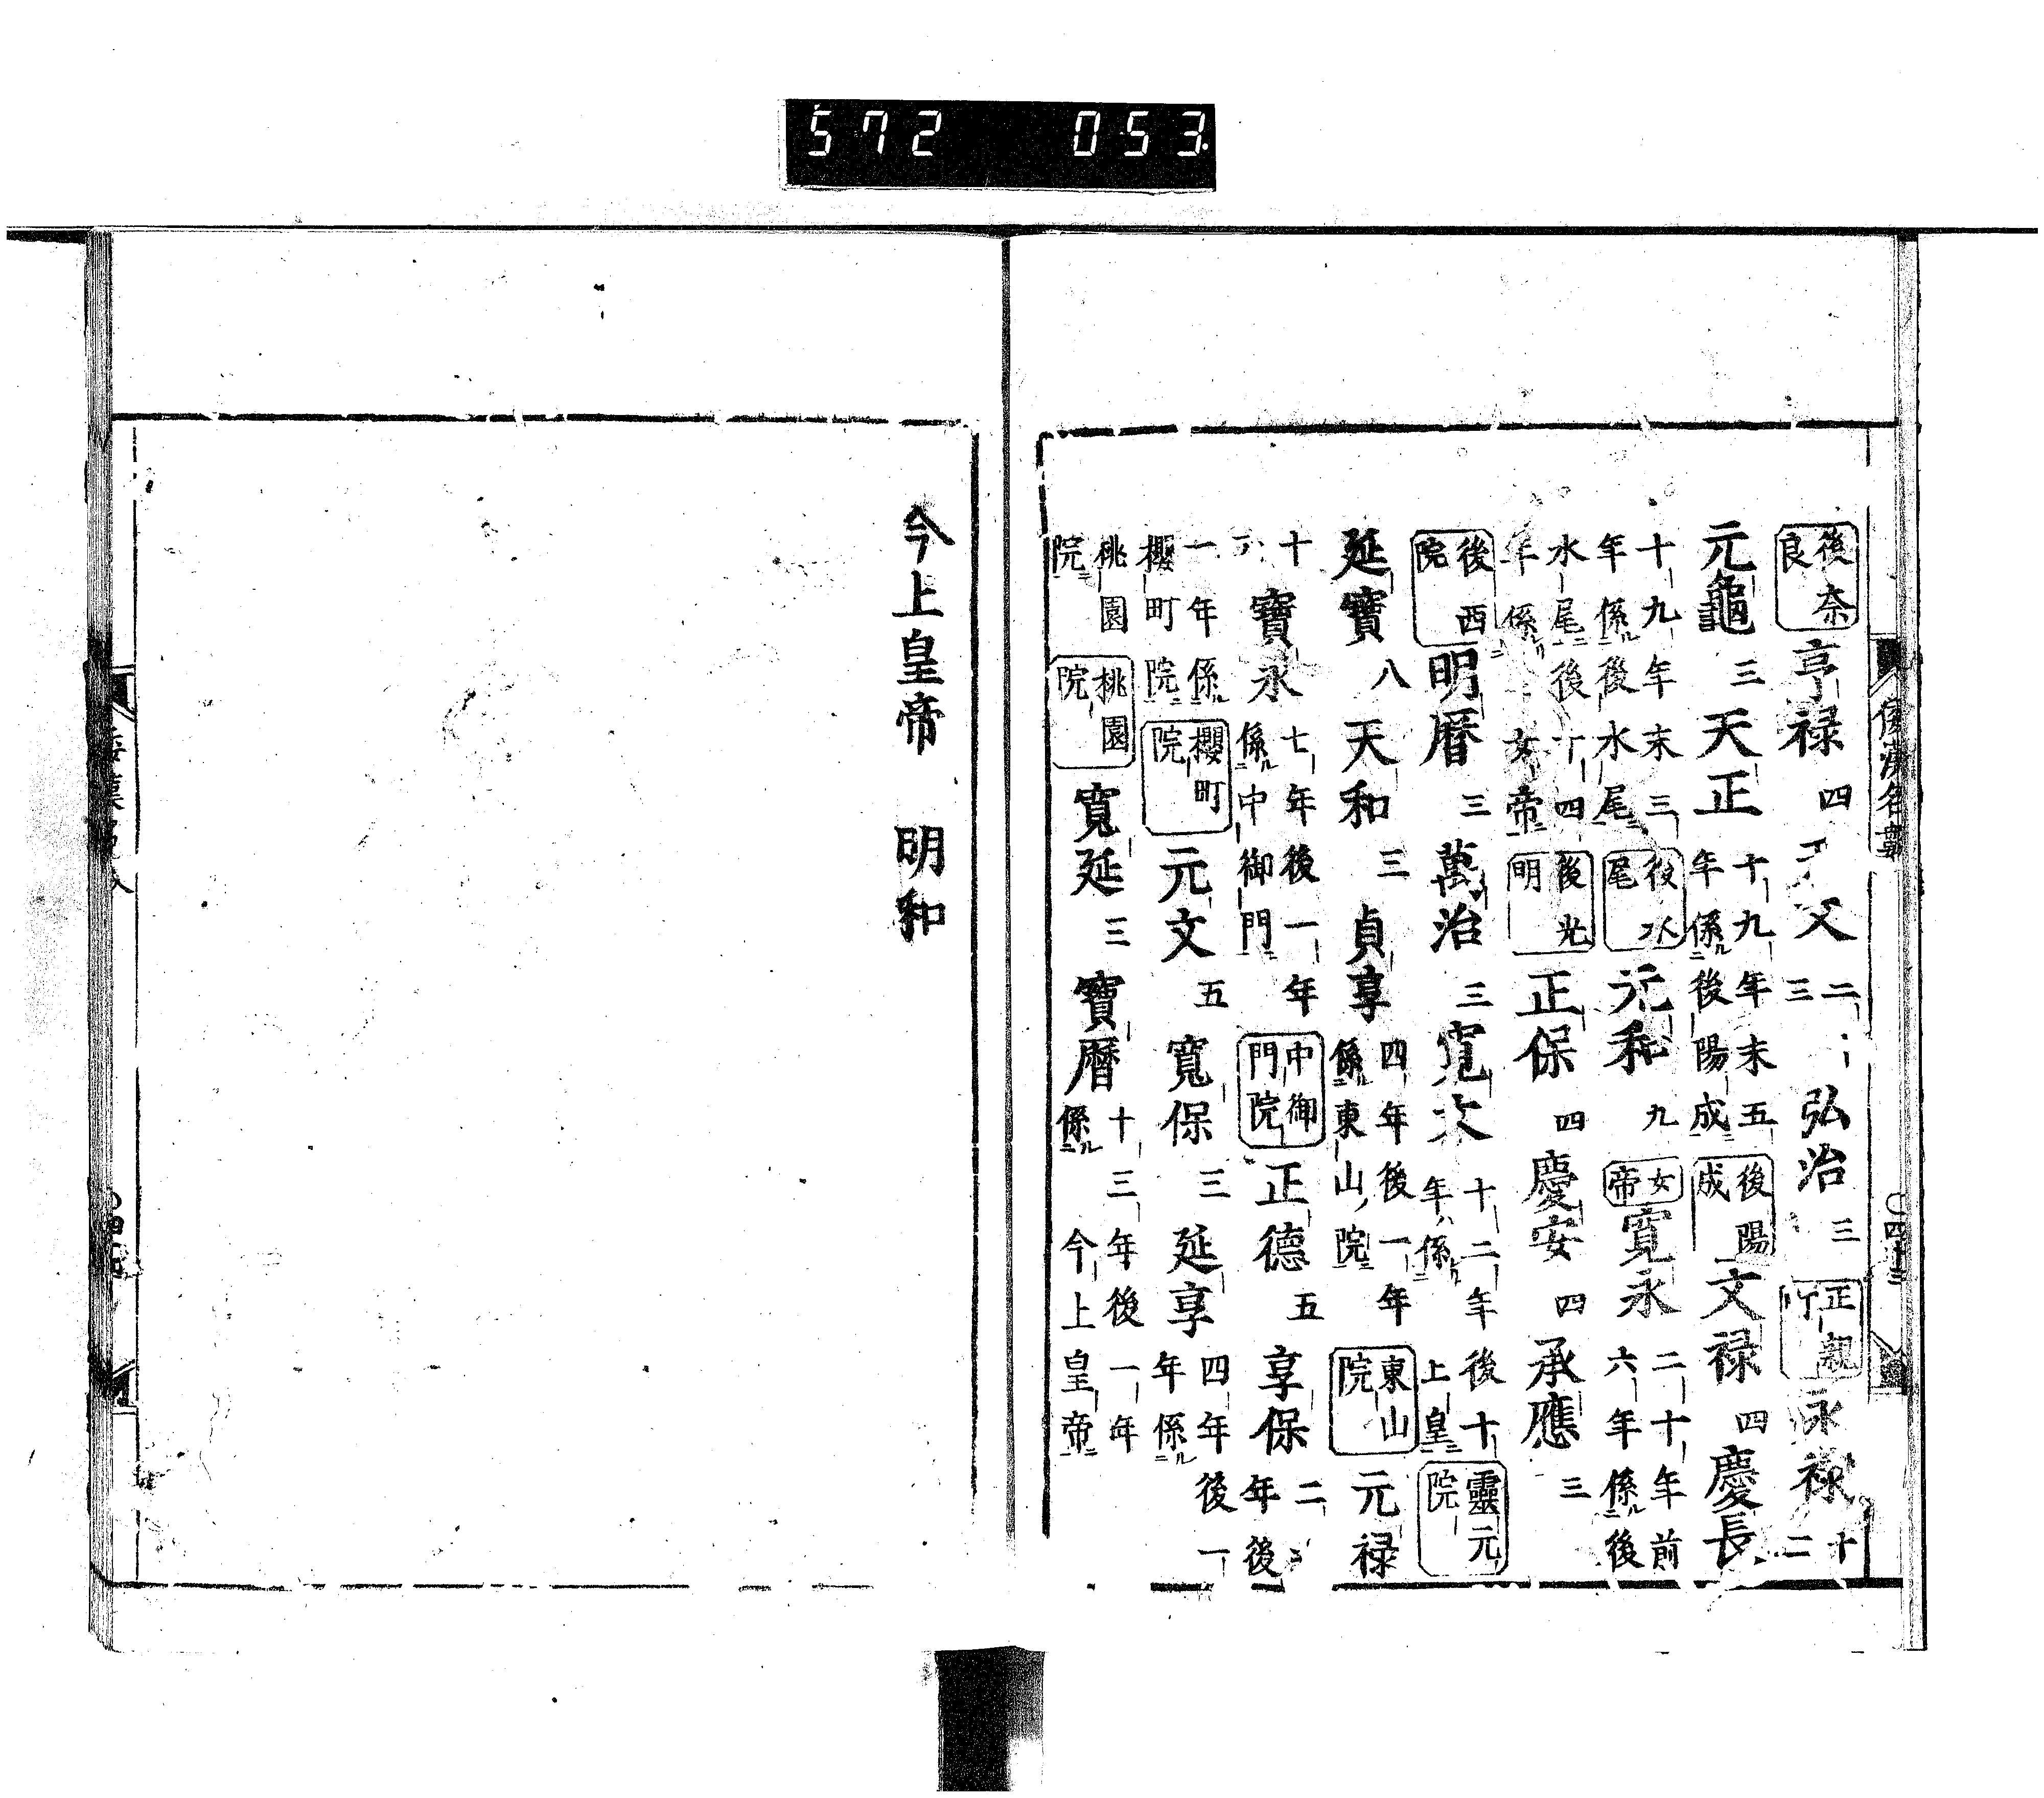 572 053
後奈良 亨禄 四 天文 二三 弘治 三 正親 永禄 十二
元龜 三 天正 十九年末五年係ル後陽成ニ 後陽成 文禄 四 慶長
十九年末三年係ル後水尾ニ 後水尾 元和 九 女帝 寛永 二十年前六年係ル後
水尾ニ後十四年係ル女帝ニ 後光明 正保 四 慶安 四 承應 三
後西院 明曆 三 萬治 三 寛文 十二年後十年係ル上皇ニ 靈元院
延寶 八 天和 三 貞享 四年後一年係東山院ニ 東山院 元禄
十六 寶永 七年後一年係ル中御門ニ 中御門院 正德 五 享保 二年後
一年係ル櫻町院ニ 櫻町院 元文 五 寛保 三 延享 四年後一年係ル
桃園院ニ 桃園院 寛延 三 寶曆 十三年後一年係ル今上皇帝ニ
今上皇帝 明和
倭漢名數 〇四十三